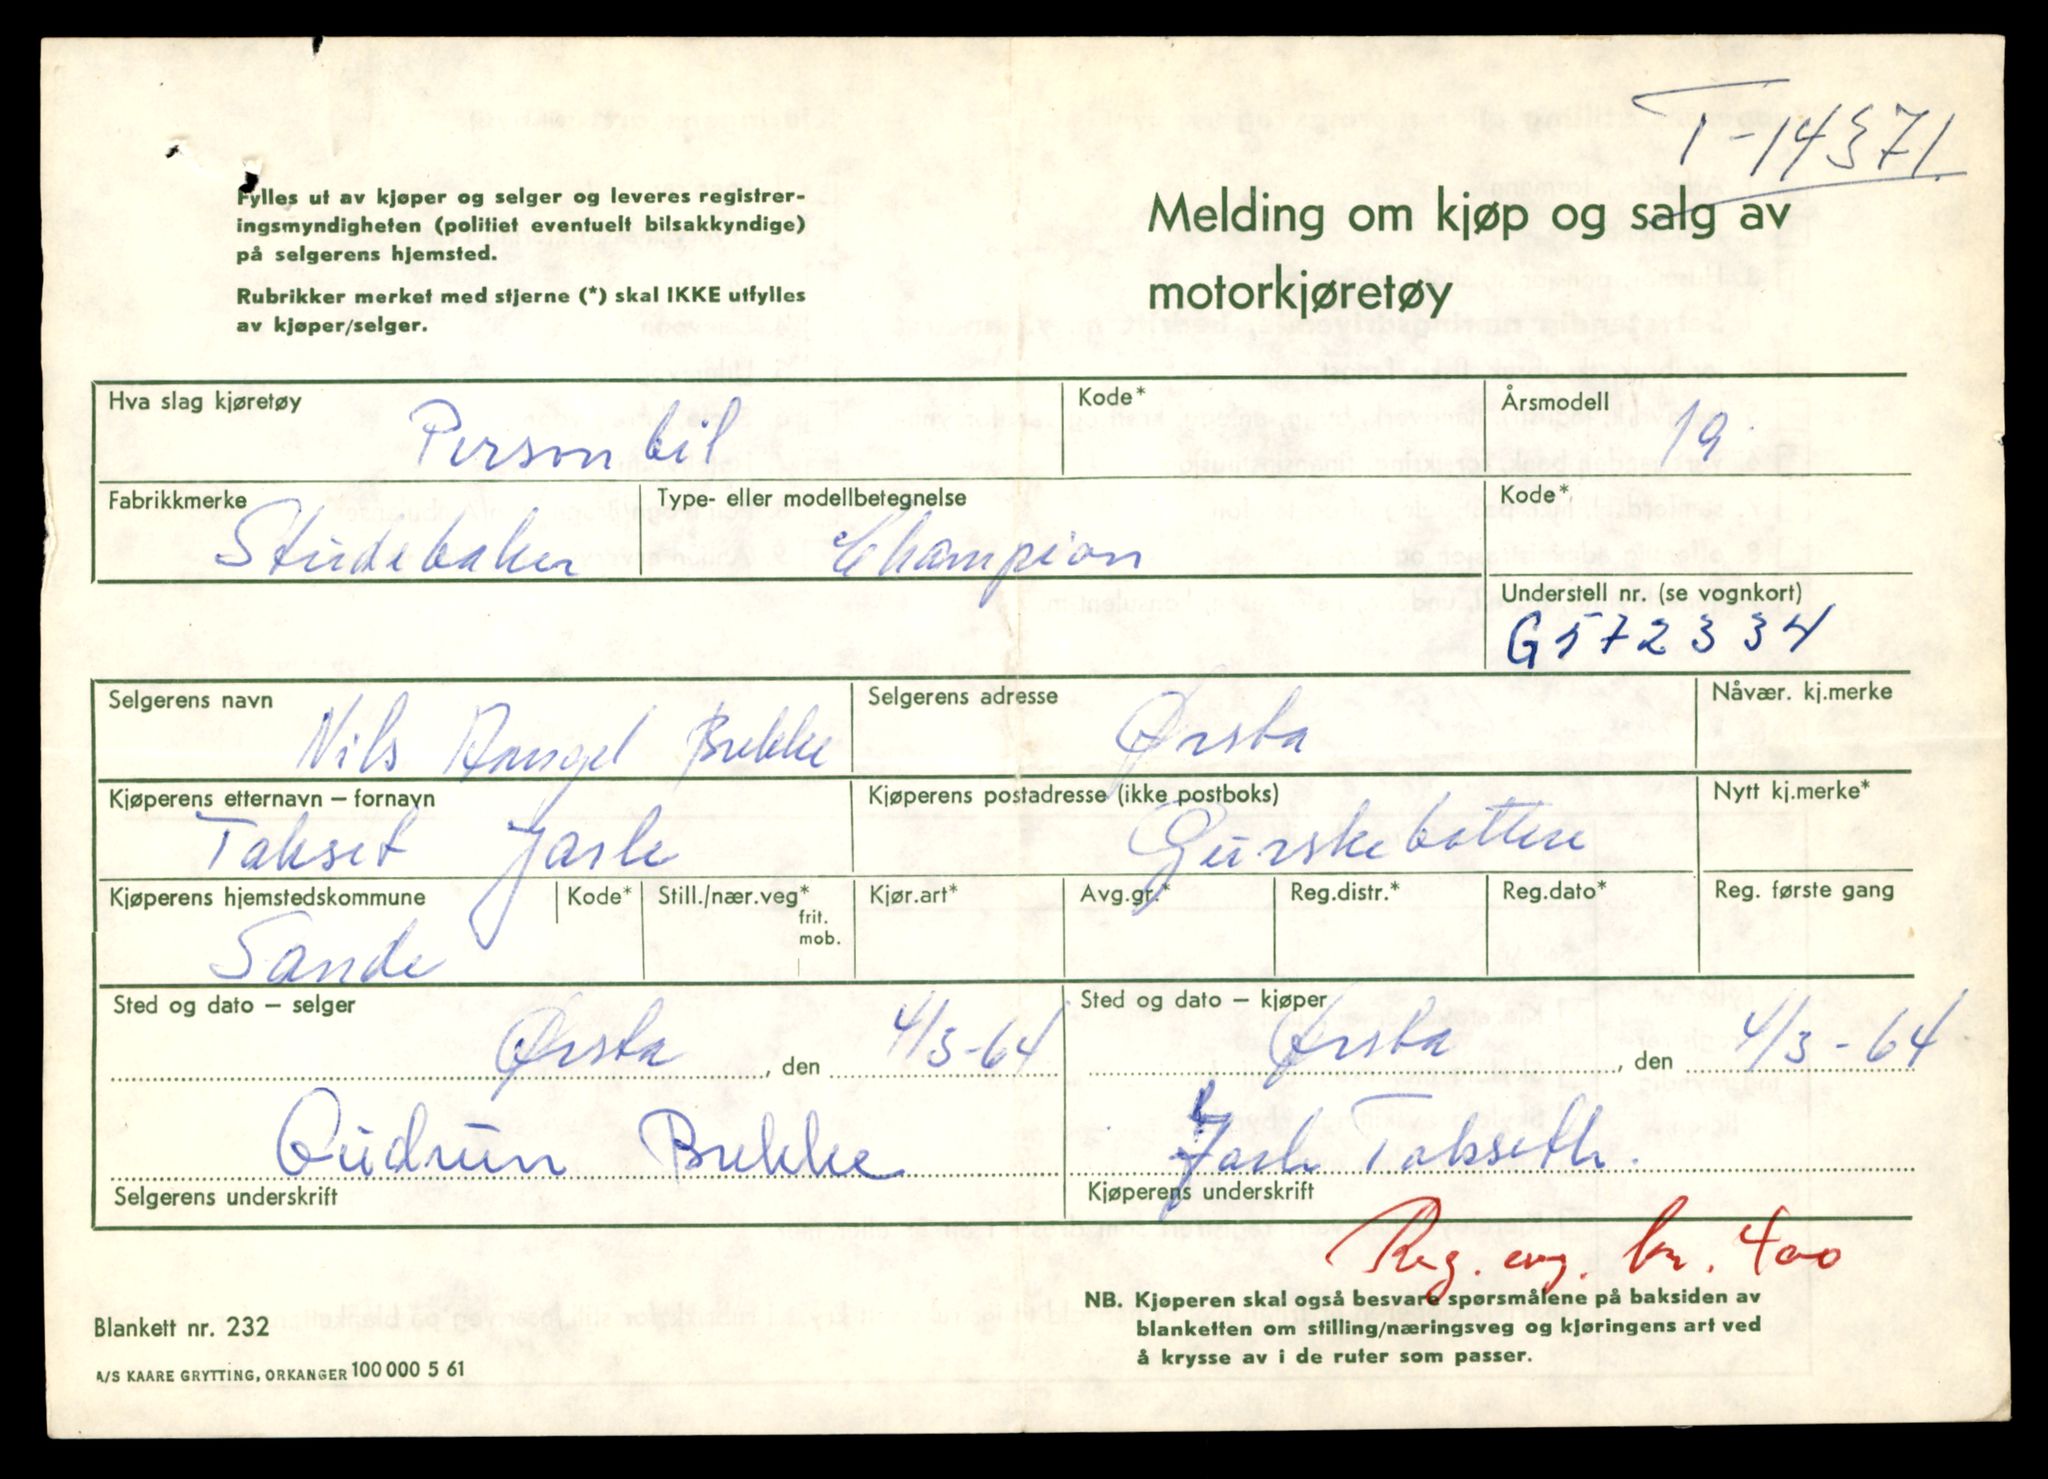 T-14371
Fylles ut av kjøper og selger og leveres registrer-
ingsmyndigheten (politiet eventuelt bilsakkyndige)
på selgerens hjemsted.
Rubrikker merket med stjerne (*) skal IKKE utfylles
av kjøper/selger.
Melding om kjøp og salg av
motorkjøretøy
Hva slag kjøretøy Personbil Kode* Årsmodell 19
Fabrikkmerke Studebaker Type- eller modellbetegnelse Champion Kode*
Understell nr. (se vognkort)
G572334
Selgerens navn Selgerens adresse Nåvær. kj.merke
Nils Bekke Ørsta
Kjøperens etternavn – fornavn Kjøperens postadresse (ikke postboks) Nytt kj.merke*
Takset Jarle Gurskebotten
Kjøperens hjemstedskommune Kode* Still./nær.veg* frit. mob. Kjør.art* Avg.gr.* Reg.distr.* Reg.dato* Reg. første gang
Sande
Sted og dato – selger Sted og dato – kjøper
Ørsta, den 4/3-64 Ørsta, den 4/3-64
Gudrun Bekke Jarle Takseth.
Selgerens underskrift Kjøperens underskrift
Reg. avg. kr. 400
NB. Kjøperen skal også besvare spørsmålene på baksiden av
blanketten om stilling/næringsveg og kjøringens art ved
å krysse av i de ruter som passer.
Blankett nr. 232
A/S KAARE GRYTTING, ORKANGER 100 000 5 61